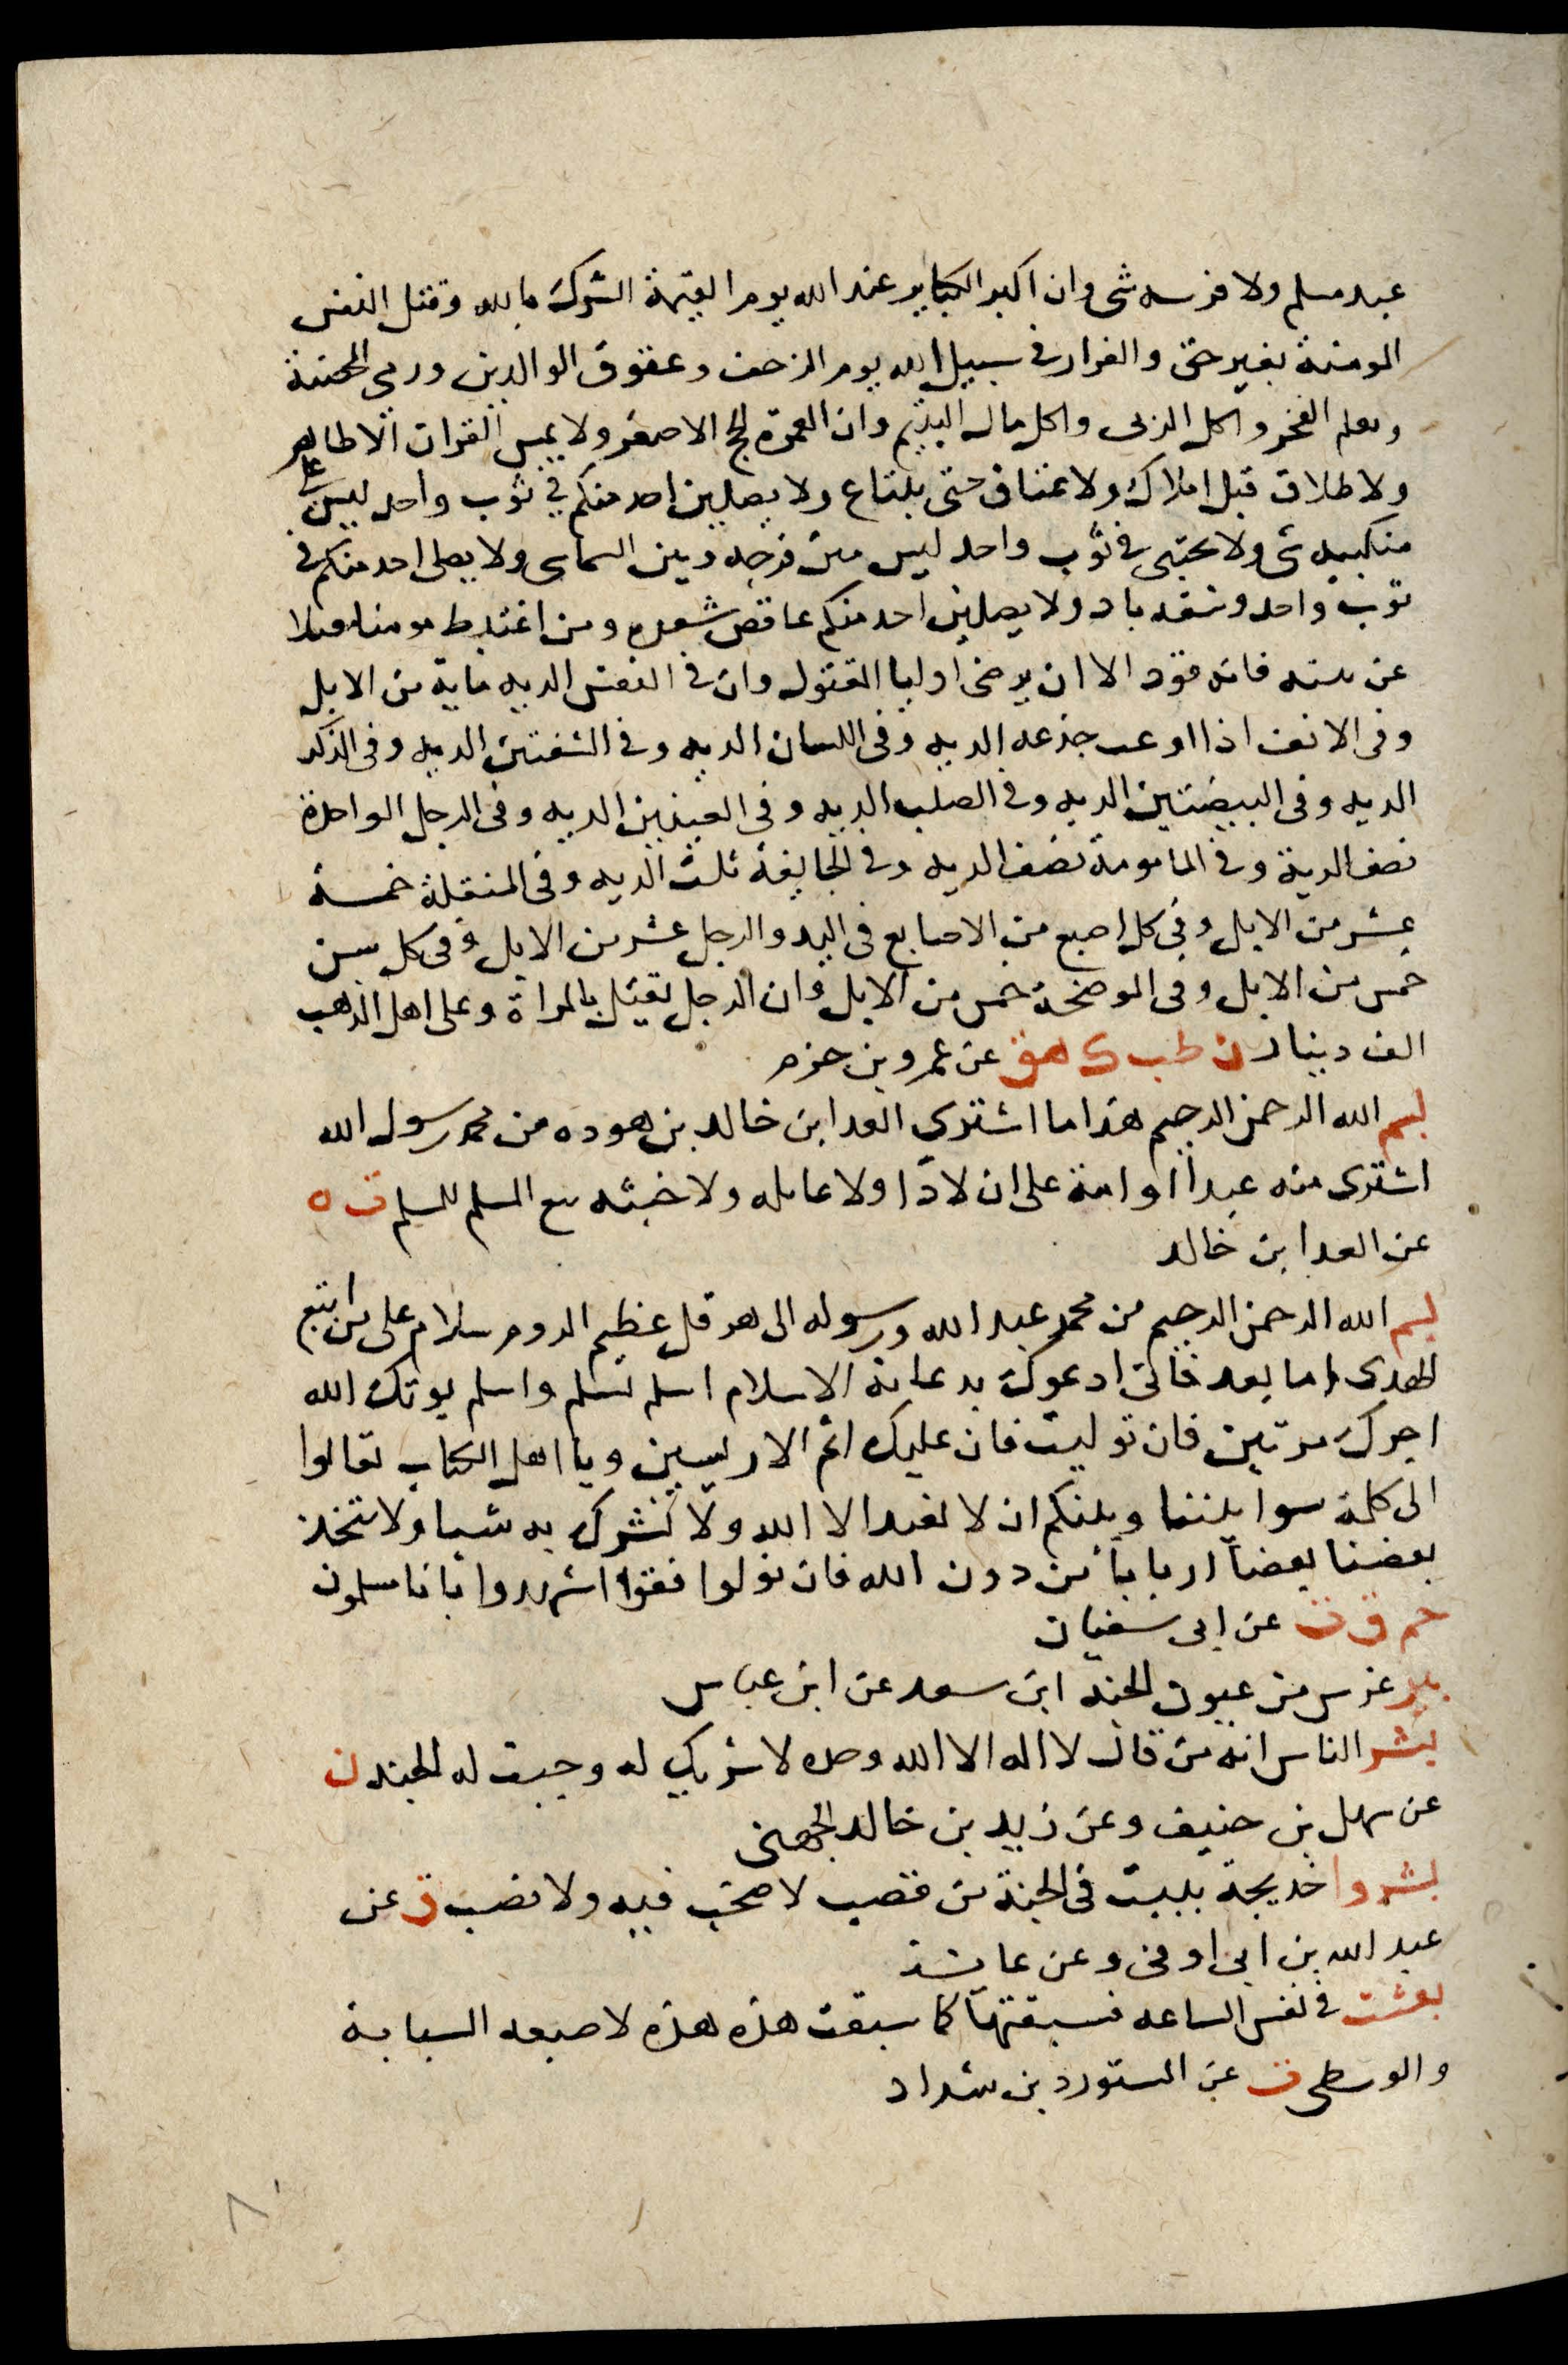 عبد مسلم ولا فرسه شى وان اكبر الكباير عند الله يوم القيمة الشرك بالله وقتل النفس
المومنة بغير حق والفرار فى سبيل الله يوم الزحف وعقوق الوالدين ورمى المحصنة
وتعلم السحر واكل الربى واكل مال اليتيم وان العمرة الحج الاصغر ولا يمس القران الا طاهر
ولا طلاق قبل املاك ولا عتاق حتى يبتاع ولا يصلين احد منكم فى ثوب واحد ليس على
منكبيه شى ولا يحتبى فى ثوب واحد ليس بين فرجه وبين السماى ولا يصلى احد منكم فى
ثوب واحد وشقه باد ولا يصلين احد منكم عاقص شعره ومن اعتبط مومنا قتلا
عن بينه فانه قود الا ان يرضى اوليا المقتول وان فى النفس الديه ماية من الابل
وفى الانف اذا اوعب جذعه الديه وفى اللسان الديه وفى الشفتين الديه وفى الذكر
الديه وفى البيضتين الديه وفى الصلب الديه وفى العينين الديه وفى الرجل الواحدة
نصف الدية وفى المامومة نصف الديه وفى الجايفة ثلث الديه وفى المنقلة خمسة
عشر من الابل وفى كل اصبع من الاصابع فى اليد والرجل عشر من الابل وفى كل سن
خمس من الابل وفى الموضحة خمس من الابل وان الرجل يقتل بالمراة وعلى اهل الذهب
الف دينار ن طب ك هق عن عمرو بن حزم
بسم الله الرحمن الرحيم هذا ما اشترى العدا بن خالد بن هوده من محمد رسول الله
اشترى منه عبداً او امة على ان لا داً ولا عايله ولا خبثه بيع المسلم للمسلم ت ه
عن العدا بن خالد
بسم الله الرحمن الرحيم من محمد عبد الله ورسوله الى هرقل عظيم الروم سلام على من اتبع
الهدى اما بعد فانى ادعوك بدعاية الاسلام اسلم تسلم واسلم يوتك الله
اجرك مرتين فان توليت فان عليك اثم الاريسيين ويا اهل الكتاب تعالوا
الى كلمة سوا بيننا وبينكم ان لا نعبد الا الله ولا نشرك به شيا ولا يتخذ
بعضنا بعضاً ارباباً من دون الله فان تولوا فقولوا اشهدوا بانا مسلمون
حم ق ن عن ابى سفيان
بير غرس من عيون الجنه ابن سعد عن ابن عباس
بشر الناس انه من قال لا اله الا الله وحده لا شريك له وجبت له الجنه ن
عن سهل بن حنيف وعن زيد بن خالد الجهنى
بشروا خديجة ببيت فى الجنة من قصب لا صخب فيه ولا نصب ق عن
عبد الله بن ابى اوفى وعن عايشة
بعثت فى نفس الساعه فسبقتها كما سبقت هذه هذه لاصبعه السبابة
والوسطى ت عن المستورد بن شداد
٨٠